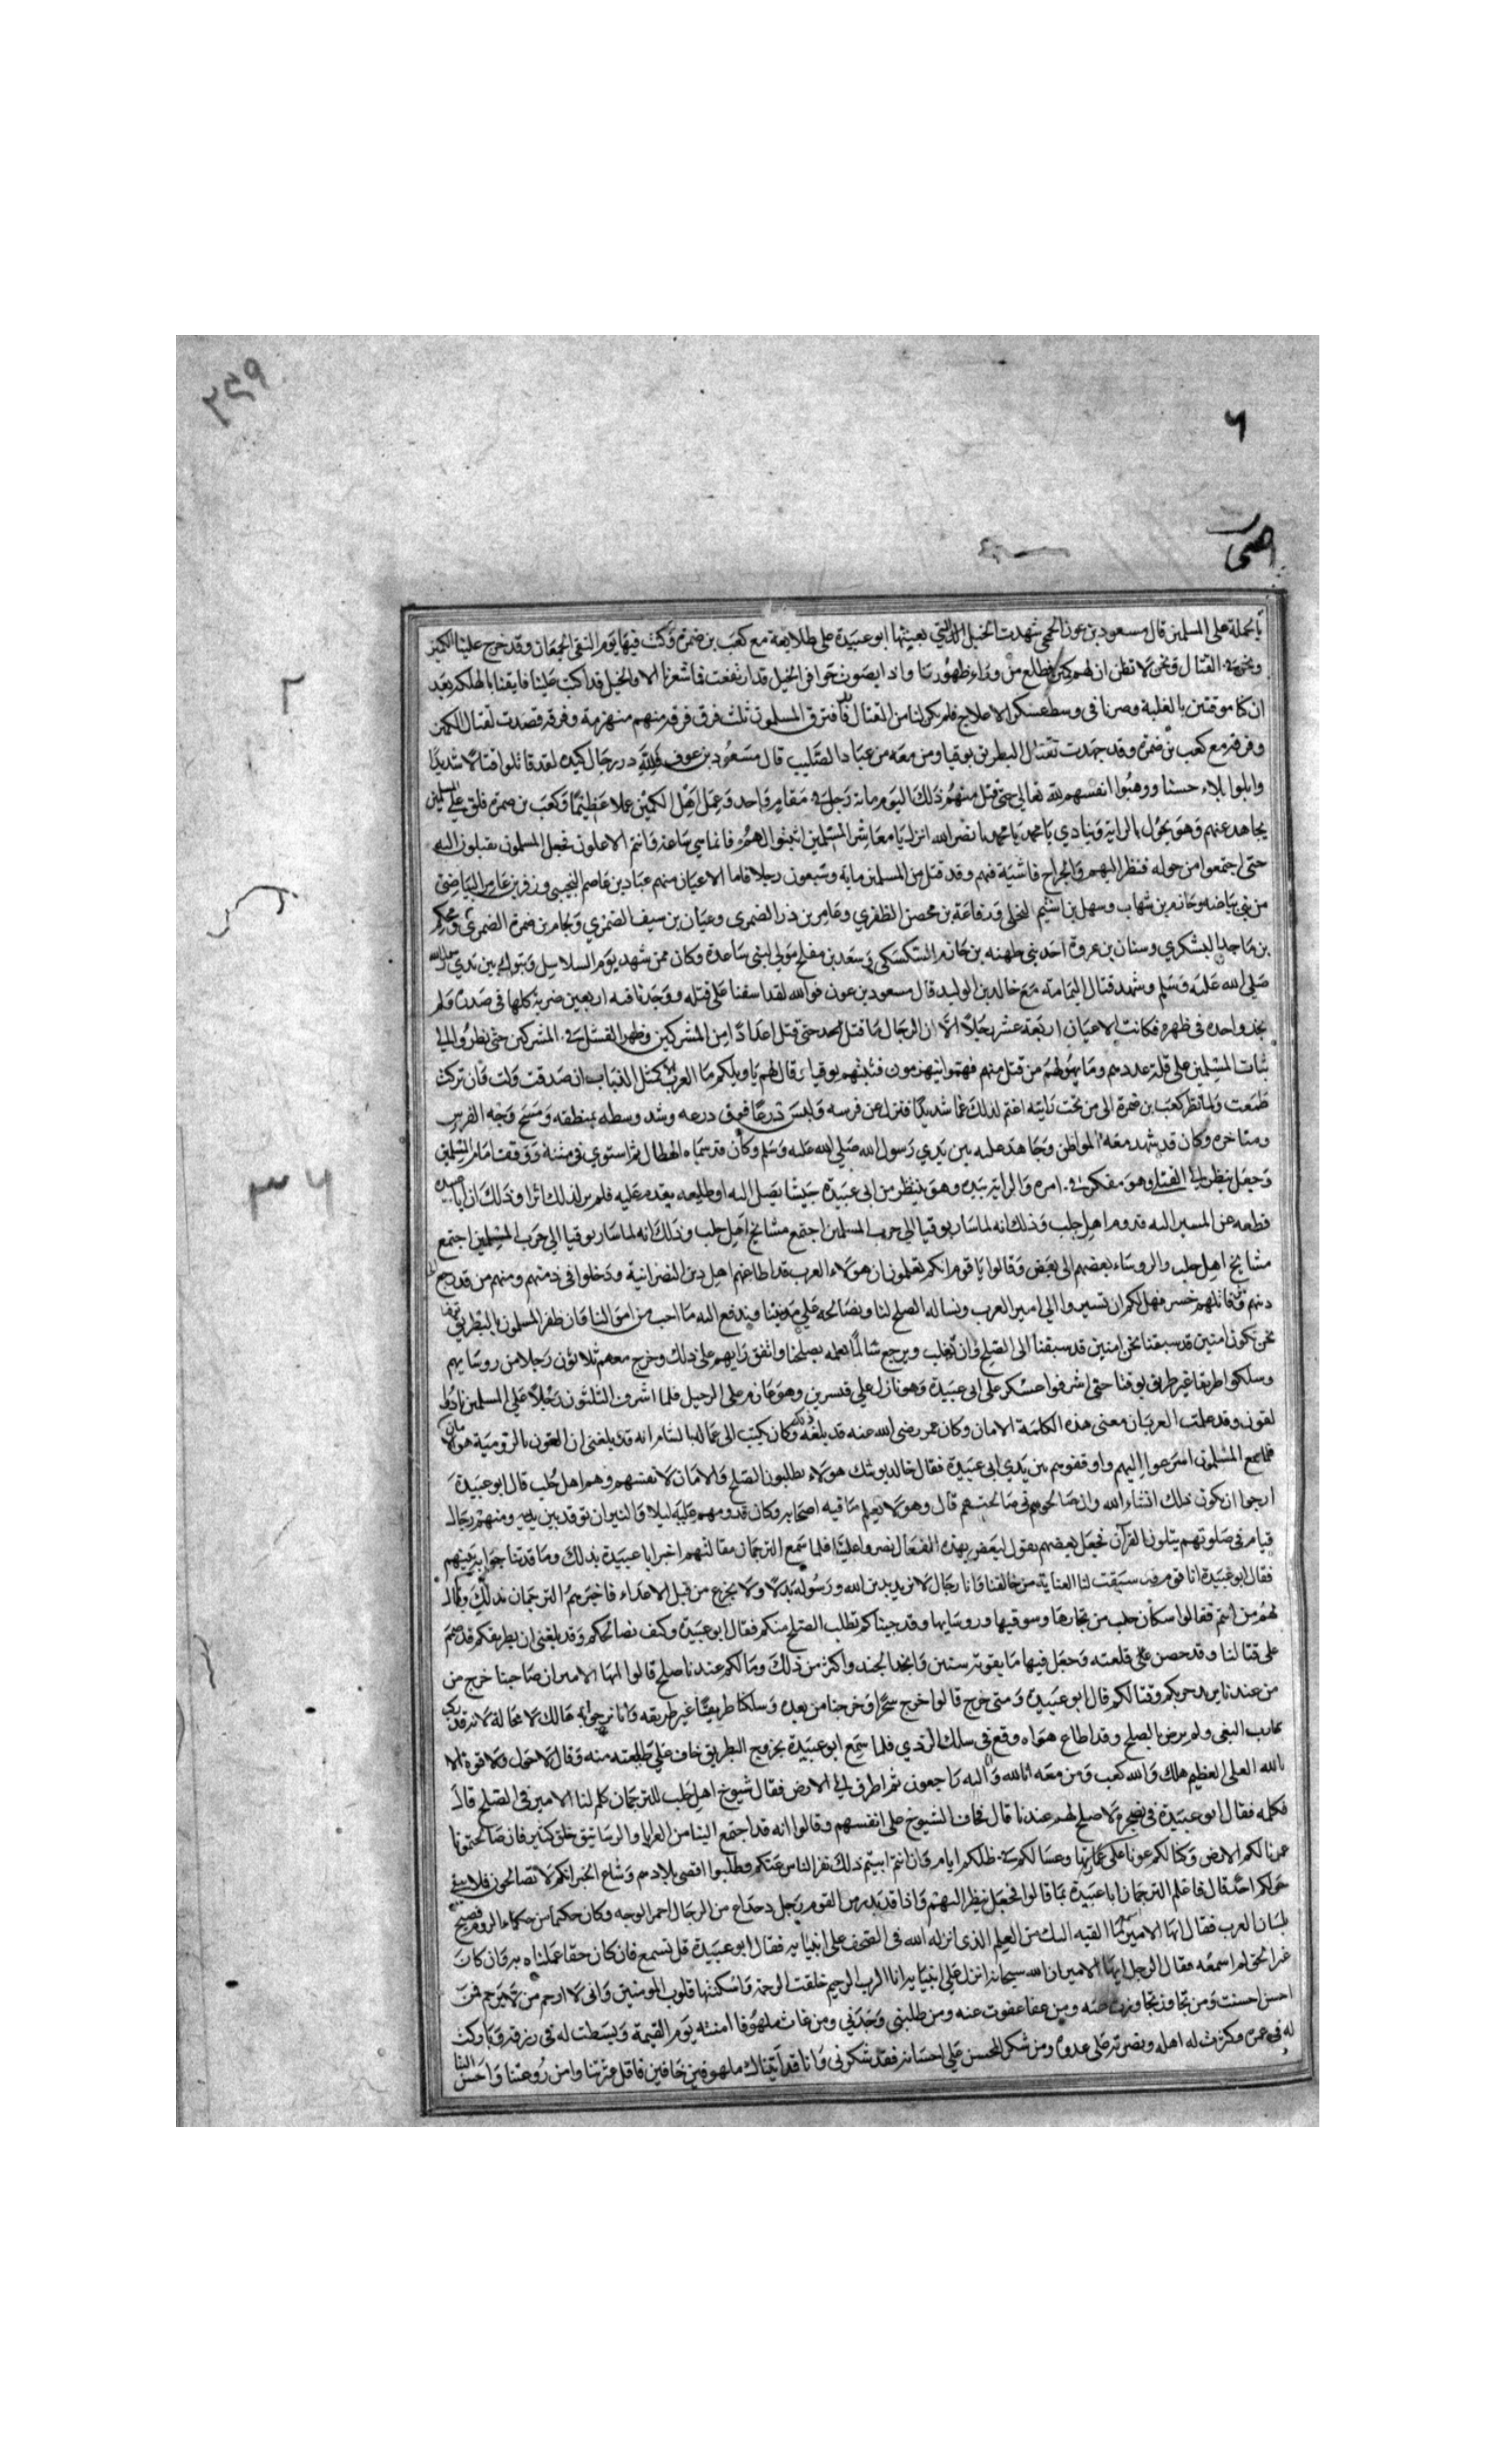 ۲۵۹
۶
۲
۳۶
بالحملة على المسلمين قال مسعود بن عون الحمحى شهدت الخيل التي بعيثها ابو عبيدة على طلايعة مع كعب بن ضمرة وكنت فيها يوم التقى الجمعان وقد خرج علينا الكمين
ونحن في القتال ونحن لا نظن ان لهم كمين يطلع من وراء ظهورنا واذا بصوت حوافر الخيل قد ارتفعت فما شعرنا الا والخيل قد اكبت علينا فايقنا بالهلكة بعد
ان كنا موقنين بالغلبة وصرنا في وسط عسكر الاعلاج فلم يكن لنا من القتال فافترق المسلمون ثلث فرق فرقة منهم منهزمة وفرقة قصدت لقتال الكمين
وفرقة مع كعب بن ضمرة وقد جهدت لقتال البطريق يوقنا ومن معه من عباد الصليب قال مسعود بن عوف فلله در رجال كيده لقد قاتلوا قتالا شديدا
وابلوا بلاء حسنا ووهبوا انفسهم لله تعالى حتى قتل منهم ذلك اليوم مائة رجل في مقام واحد وعمل اهل الكمين عملا عظيما وكعب بن ضمرة قلق على المسلمين
يجاهد عنهم وهو يجول بالراية وينادي يا محمد يا محمد يا نصر الله انزل يا معاشر المسلمين اثبتوا لهم فانما هي ساعة وانتم الاعلون فجعل المسلمون يقبلون اليه
حتى اجتمعوا من حوله فنظر اليهم والجراح فاشية فيهم وقد قتل من المسلمين ماية وسبعون رجلا فاما الاعيان منهم عباد بن عاصم النجيبي وزفر بن عامر البياضي
من بني بياضة وحازم بن شهاب وسهل بن اشيم النخلي ورفاعة بن محصن الظفري وعامر بن ذر الضمرى وعيان بن سيف الضمري ولجام بن ضمرة الضمري ومحكم
بن ماجد اليشكري وسنان بن عروة احد بني طهنه بن حازم السكسكي وسعد بن مفلح مولى لبني ساعدة وكان ممن شهد يوم السلاسل وتبوك بين يدي رسول الله
صلى الله عليه وسلم وشهد قتال اليمامة مع خالد بن الوليد قال مسعود بن عون فوالله لقد اسفنا على قتله ووجدنا فيه اربعين ضربة كلها في صدره ولم
نجد واحدة في ظهره فكانت الاعيان اربعة عشر رجلا الا ان الرجال ما قتل احد حتى قتل اعدادا من المشركين وظهر الفشل في المشركين حتى نظروا الى
ثبات المسلمين على قلة عددهم وما يهولهم من قتل منهم فهموا ينهزمون فثبتهم يوقنا وقال لهم يا ويلكم ما العرب الا كمثل الذباب ان صدقت ولت وان تركت
طمعت ولما نظر كعب بن ضمرة الى من تحت رايته اغتم لذلك غما شديدا فنزل عن فرسه ولبس درعا فوق درعه وشد وسطه بمنطقه ومسح وجه الفرس
ومناخره وكان قد شهد معه المواطن وجاهد عليه بين يدي رسول الله صلى الله عليه وسلم وكان قد سماه الهطال ثم استوى في متنه ووقف امام المسلمين
وجعل ينظر الى القتلى وهو مفكر في امره والراية بيده وهو ينتظر من ابي عبيدة جيشا يصل اليه او طليعه يقدم عليه فلم ير لذلك اثرا وذلك ان ابا عبيده
قطعه عن المسير اليه قدوم اهل حلب وذلك انه لما سار يوقنا الى حرب المسلمين اجتمع مشايخ اهل حلب وذلك انه لما سار يوقنا الى حرب المسلمين اجتمع
مشايخ اهل حلب والروساء بعضهم الى بعض وقالوا يا قوم انكم تعلمون ان هؤلاء العرب قد اطاعهم اهل دين النصرانية ودخلوا في ذمتهم ومنهم من قد رجع الى
دينهم ومن قاتلهم خسر فهل لكم ان تسيروا الى امير العرب ونساله الصلح لنا ونصالحه على مدينتنا وندفع اليه ما احب من اموالنا فان ظفر المسلمون بالبطريق
نحن نكون امنين قد سبقنا نحن امنين قد سبقنا الى الصلح وان غلب ويرجع سالما بصلحنا واتفق رايهم على ذلك وخرج معهم ثلاثون رجلا من روسايهم
وسلكوا طريقا غير طريق يوقنا حتى اشرفوا عسكر على ابي عبيدة وهو نازل على قنسرين وهو عازم على الرحيل فلما اشرف الثلثون رجلا على المسلمين نادوا
لقون وقد علمت العربان معنى هذه الكلمة الامان وكان عمر رضى الله عنه قد بلغه ذلك وكان كتب الى عماله بالشام انه قد بلغني ان الغون بالرومية هو الامان
فلما سمع المسلمون اسرعوا اليهم واوقفوهم بين يدي ابى عبيدة فقال خالد يوشك هولاء يطلبون الصلح والامان لانفسهم وهم اهل حلب قال ابو عبيدة
ارجوا ان يكون ذلك انشاء الله وان صالحوني صالحتهم قال وهو لا يعلم ما فيه اصحابه وكان قدومهم عليه ليلا والنيران توقد بين يديه ومنهم رجال
قيام في صلوتهم يتلون القرآن فجعل بعضهم يقول لبعض بهذه الفعال نصروا علينا فلما سمع الترجمان مقالتهم اخبر ابا عبيدة بذلك وما
فقال ابو عبيدة انا قوم قد سبقت لنا العناية من خالقنا وانا رجال لا نريد بدين الله ورسوله بدلا ولا نجزع من قتل الاعداء فاخبرهم الترجمان بذلك وقال
لهم من انتم فقالوا سكان حلب من تجارها وسوقيها وروسايها وقد جيناكم نطلب الصلح منكم فقال ابو عبيدة وكيف نصالحكم وقد بلغني ان بطريقكم قد صمم
على قتالنا وقد حصن على قلعته وجعل فيها ما يقوته سنين وانجد الجند واكثر من ذلك وما لكم عندنا صلح قالوا ايها الامير ان صاحبنا خرج من
من عندنا يريد حربكم وقتالكم قال ابو عبيدة ومتى خرج قالوا خرج سحرا وخرجنا من بعده وسلكنا طريقا غير طريقه وانا نرجوا انه هالك لا محالة لانه قد
البغى ولم يرض بالصلح وقد اطاع هواه ووقع في سلك الردي فلما سمع ابو عبيدة بخروج البطريق خاف على طليعته منه وقال لا حول ولا قوة الا
بالله العلى العظيم هلك والله كعب ومن معه انا لله وانا اليه راجعون ثم اطرق الى الارض فقال شيوخ اهل حلب للترجمان كلم لنا الامير في الصلح قال
فكلمه فقال ابو عبيدة في ضجره لا صلح لهم عندنا قال فخاف الشيوخ على انفسهم وقالوا انه قد اجتمع الينا من القرايا والرساتيق خلق كثير فان صالحتمونا
عمرنا لكم الارض وكنا لكم عونا على عمارتها وعشنا لكم في ظلكم ايام وان انتم ابيتم ذلك نفر الناس عنكم وطلبوا اقصى بلادهم وشاع الخبر انكم لا تصالحون فلا يبقى
حولكم احد قال فاعلم الترجمان ابا عبيدة بما قالوا فجعل ينظر اليهم واذا قد بدر من القوم رجل دحداح من الرجال احمر الوجه وكان حكيما من حكماء الروم فصيح
بلسان العرب فقال ايها الامير اسمع لما القيه اليك من العلم الذى انزله الله فى الصحف على انبيايه فقال ابو عبيدة قل نسمع فان كان حقا عملنا به وان كان
غير الحق لم اسمعه فقال الرجل ايها الامير ان الله سبحانه انزل على انبيايه انا الرب الرحيم خلقت الرحمة واسكنتها قلوب المومنين وانى لا ارحم من لا يرحم فمن
احسن احسنت ومن تجاوز تجاوزت عنه ومن عفا عفوت عنه ومن طلبني وجدني ومن غاث ملهوفا امنته يوم القيمة وبسطت له فى رزقه وباركت
له في عمره وكثرت له اهله ونصرته على عدوه ومن شكر المحسن على احسانه فقد شكرني وانا قد اتيناك ملهوفين خايفين فاقل عثرتنا وامن روعتنا واحسن الينا